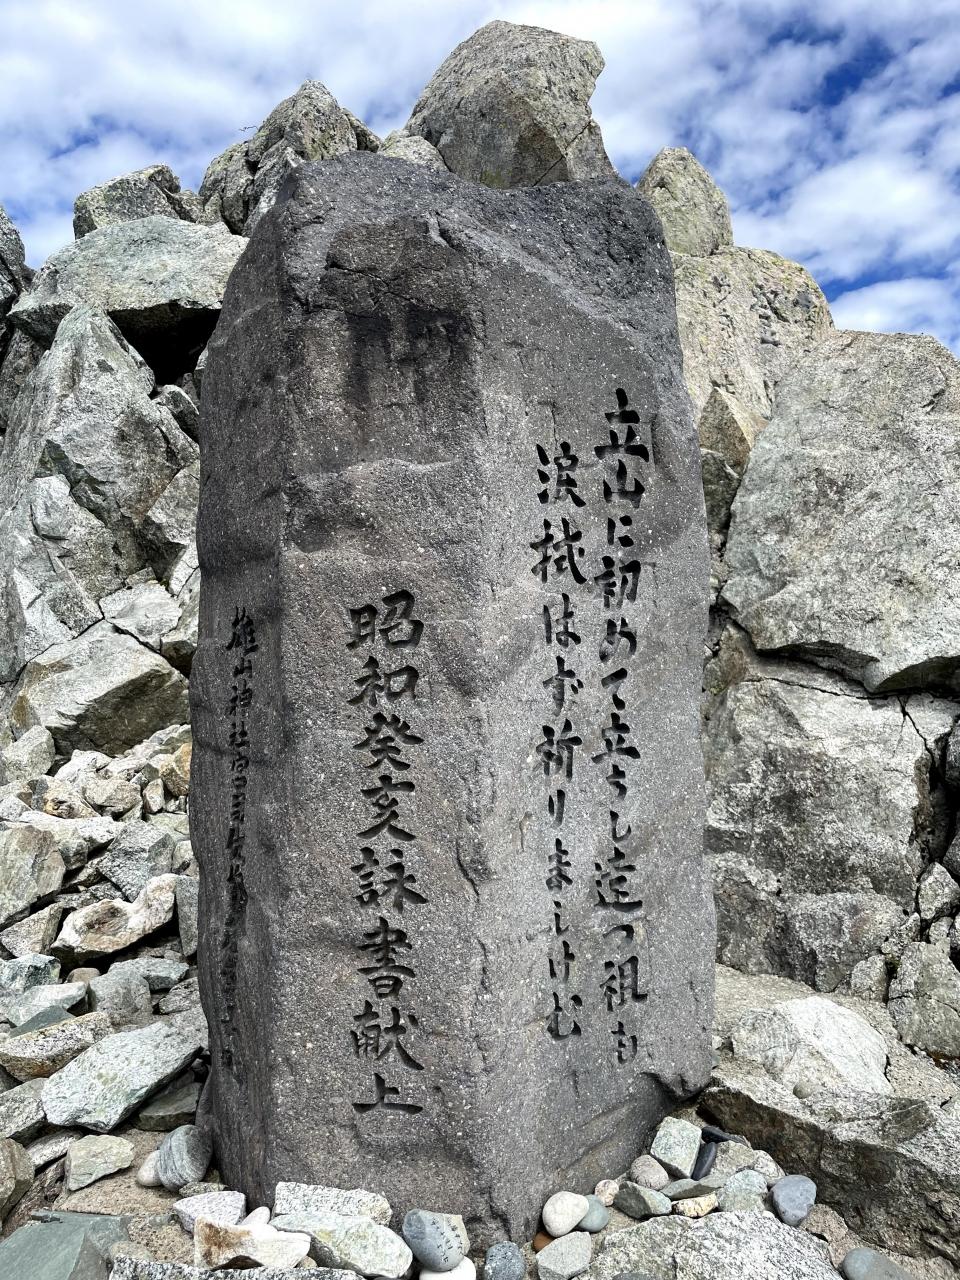 立山に初めて立ちし遠つ祖も
涙拭はず祈りましけむ
昭和癸亥詠書献上
雄山神社宮司